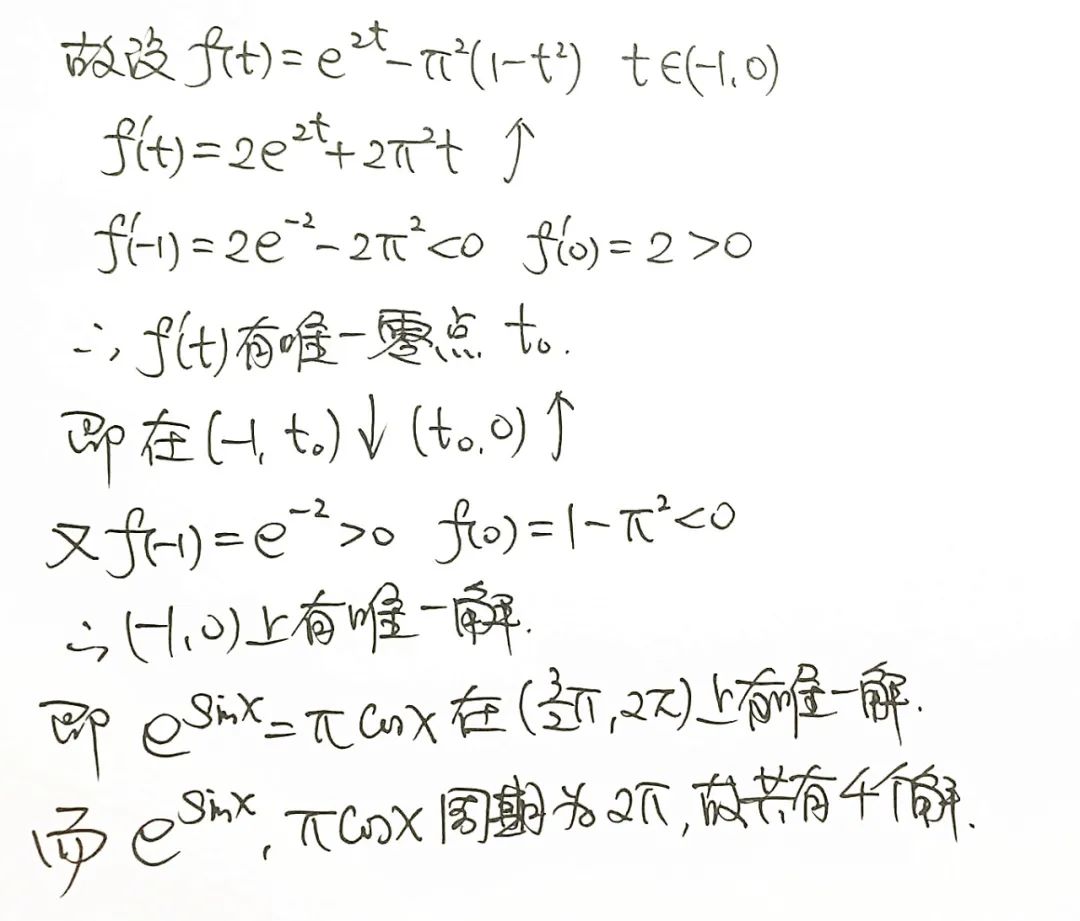 故设 f(t)=e^{2t}-π²(1-t²)  t∈(-1,0)
f'(t)=2e^{2t}+2π²t ↑
f'(-1)=2e^{-2}-2π²<0  f'(0)=2>0
∴ f'(t)有唯一零点 t₀.
即在(-1, t₀)↓ (t₀,0)↑
又 f(-1)=e^{-2}>0  f(0)=1-π²<0
∴ (-1,0)上有唯一解.
即 e^{sinx}=πcosx 在(3/2π,2π)上有唯一解.
而 e^{sinx}, πcosx 周期为2π,故共有4个解.